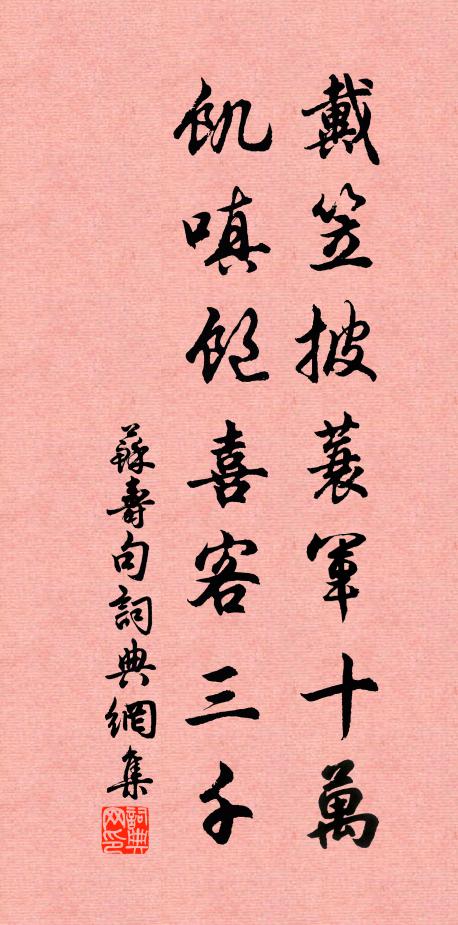 戴笠披蓑軍十萬
飢嗔飽喜客三千
蘇壽句詞典網集
詞典网印